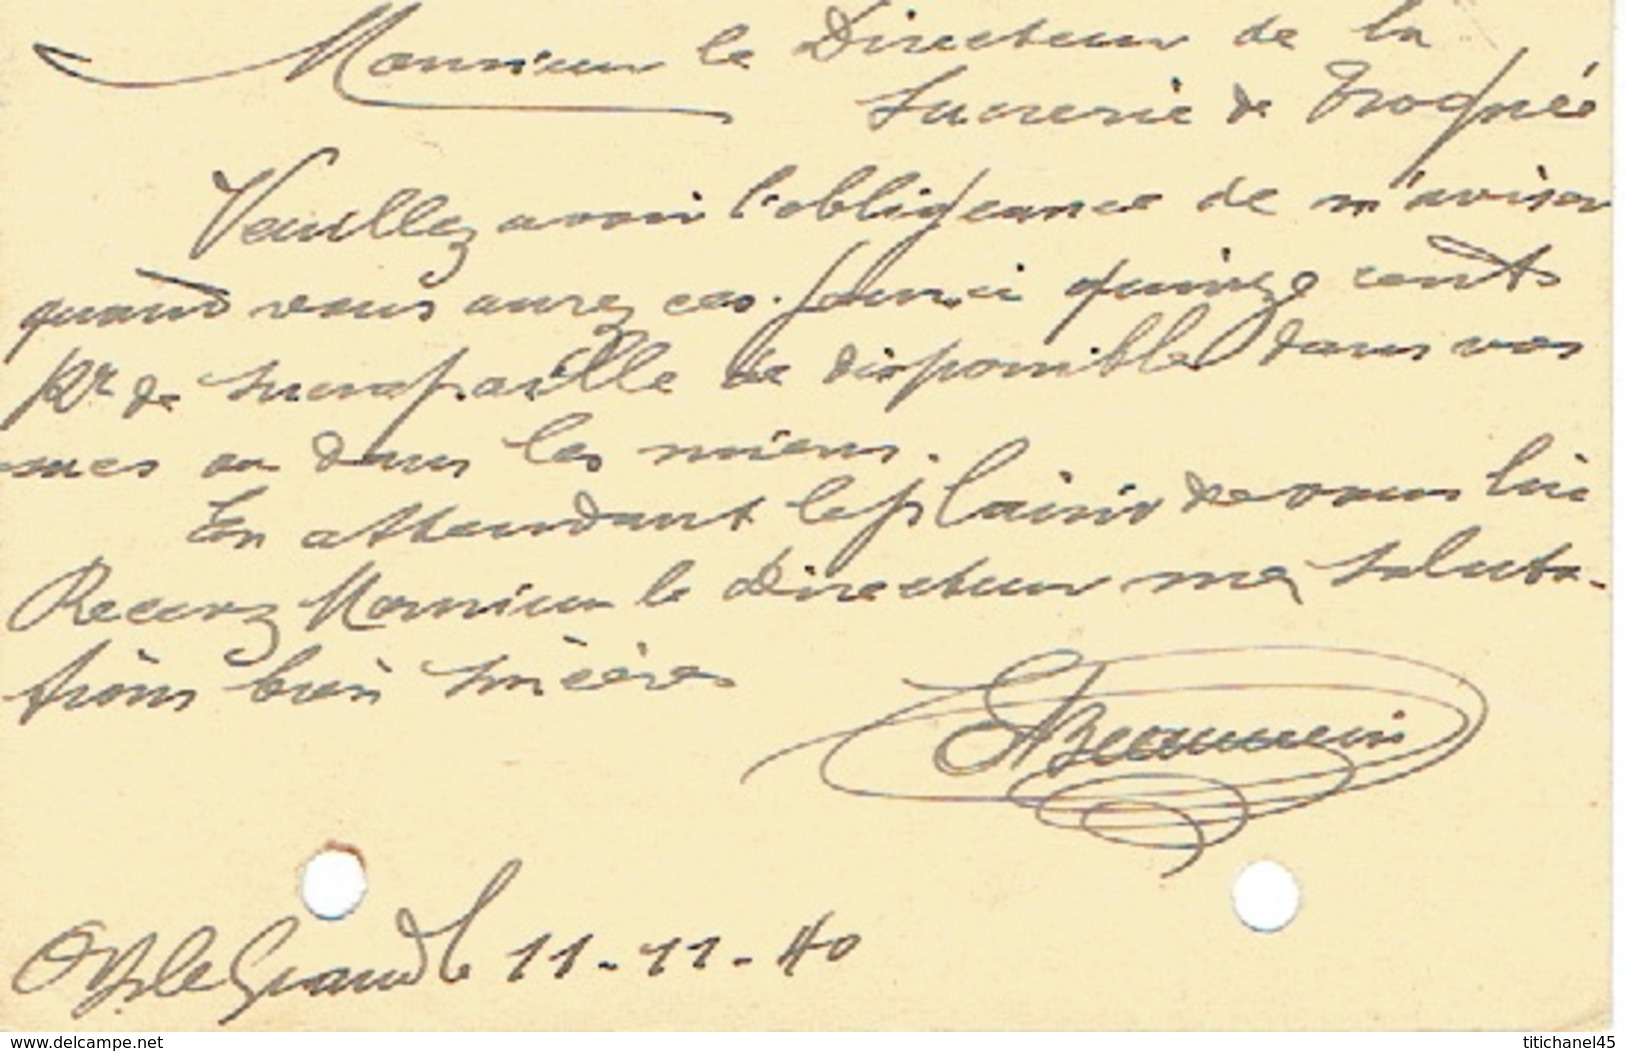 Monsieur le Directeur de la
Sucrerie de Frognée
Veuillez avoir l'obligeance de m'aviser
quand vous aurez ces jours ci quinze cents
Kgr de sucrapaille de disponible dans vos
sacs ou dans les miens.
En attendant le plaisir de vous lire
Recevez Monsieur le Directeur mes saluta-
tions bien sincères
Orp le Grand le 11-11-40
www.delcampe.net
titichanel45